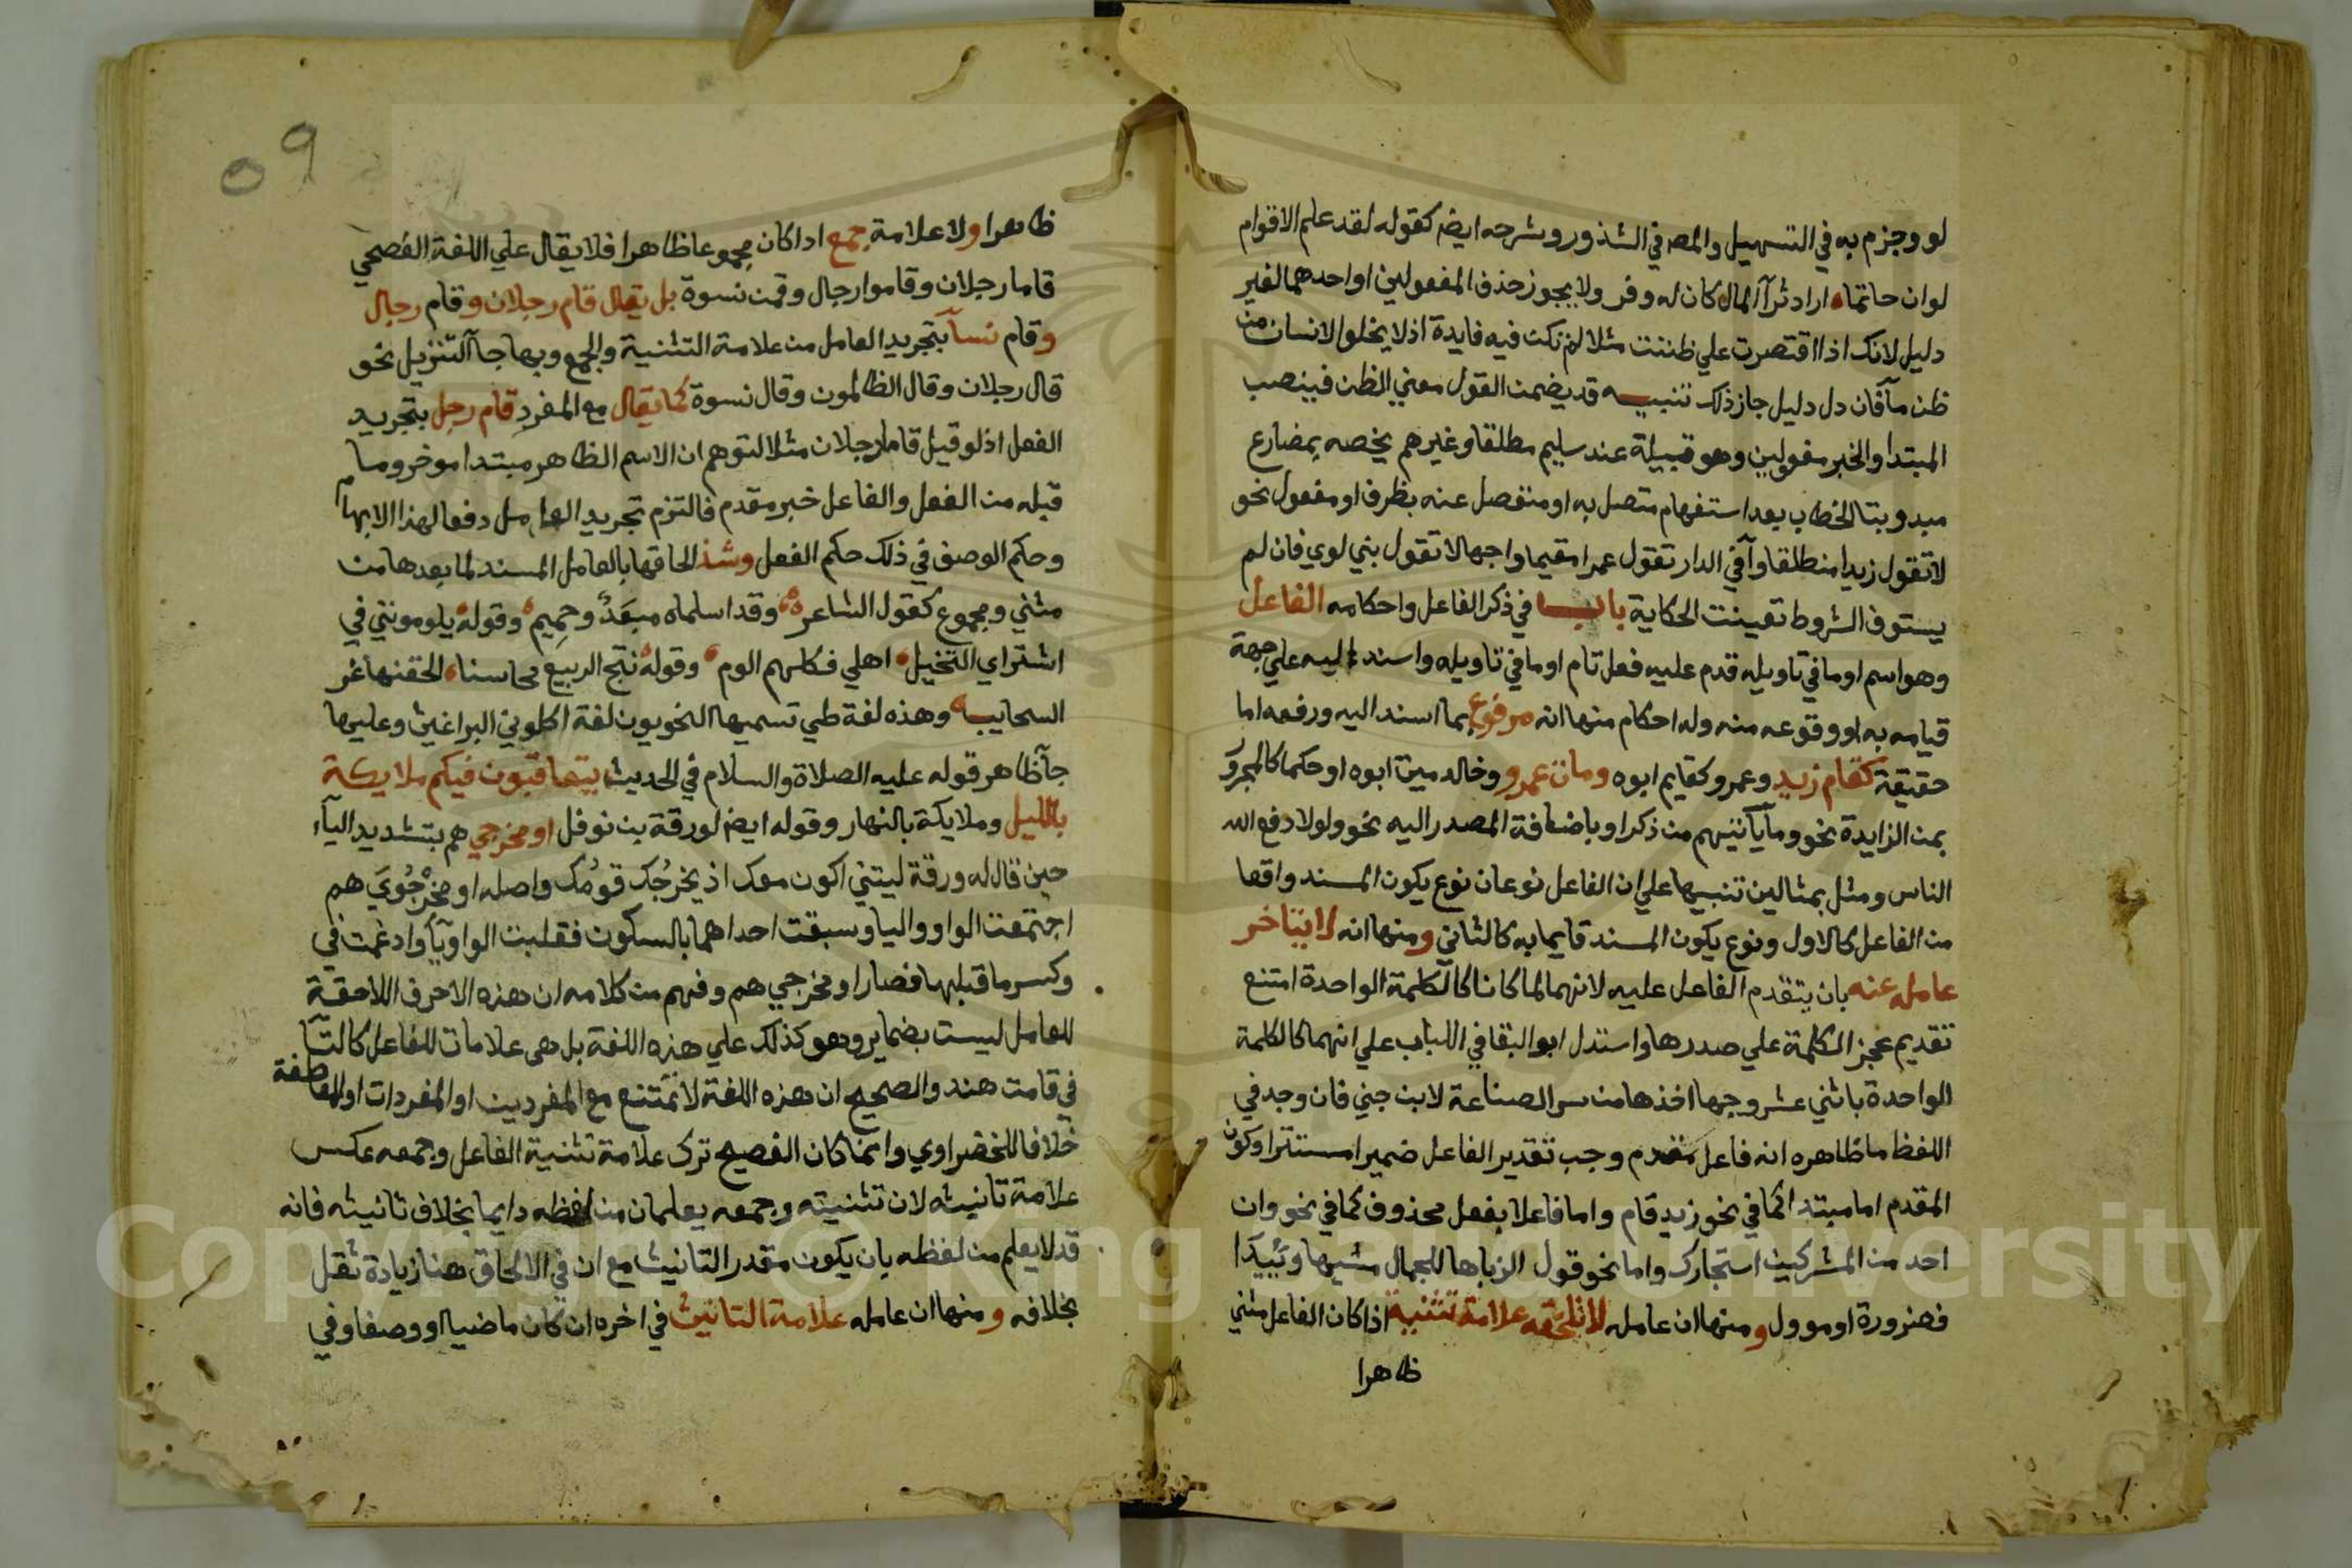 لو وجزم به في التسهيل والمص في الشذور وشرحه ايض كقوله لقد علم الاقوام
لو ان حاتما اراد ثرآ المال كان له وفر ولا يجوز حذف المفعولين او احدهما لغير
دليل لانك اذا اقتصرت علي ظننت مثلا لم تكن فيه فايدة اذ لا يخلوا الانسان من
ظن مآ فان دل دليل جاز ذلك تنبيـه قد يضمن القول معني الظن فينصب
المبتدا والخبر مفعولين وهو قبيلة عند سليم مطلقا وغيرهم يخصه بمضارع
مبدو بتا الخطاب بعد استفهام متصل به او منفصل عنه بظرف او مفعول نحو
لا تقول زيدا منطلقا وآ في الدار تقول عمرا مقيما واجهالا تقول بني لوي فان لم
يستوف الشروط تعينت الحكاية باب في ذكر الفاعل واحكامه الفاعل
وهو اسم او ما في تاويله قدم عليه فعل تام او ما في تاويله واسند اليه علي جهة
قيامه به او وقوعه منه وله احكام منها انه مرفوع بما اسند اليه ورفعه اما
حقيقة كقام زيد وعمرو كقايم ابوه ومات عمرو وخالد ميت ابوه او حكما كالمجرور
بمن الزايدة نحو وما يأتيهم من ذكر او باضافة المصدر اليه نحو ولولا دفع الله
الناس ومثل بمثالين تنبيها علي ان الفاعل نوعان نوع يكون المسند واقعا
من الفاعل كالاول ونوع يكون المسند قايما به كالثاني ومنها انه لا يتاخر
عامله عنه بان يتقدم الفاعل عليه لانهما لما كانا كالكلمة الواحدة امتنع
تقديم عجز الكلمة علي صدرها واستدل ابو البقا في اللباب علي انهما كالكلمة
الواحدة باثني عشر وجها اخذها من سر الصناعة لابن جني فان وجد في
اللفظ ما ظاهره انه فاعل مقدم وجب تقدير الفاعل ضميرا مستترا وكون
المقدم اما مبتدا كما في نحو زيد قام واما فاعلا بفعل محذوف كما في نحو وان
احد من المشركين استجارك واما نحو قول الزبا ما للجمال مشيها وئيدا
فضرورة او موول ومنها ان عامله لا تلحقه علامة تثنية اذا كان الفاعل مثني
ظاهرا
٥٩
ظاهرا ولا علامة جمع اذا كان مجموعا ظاهرا فلا يقال علي اللغة الفصحي
قاما رجلان وقاموا رجال وقمن نسوة بل يقال قام رجلان وقام رجال
وقام نسآ بتجريد العامل من علامة التثنية والجمع وبها جآ التنزيل نحو
قال رجلان وقال الظالمون وقال نسوة كما يقال مع المفرد قام رجل بتجريد
الفعل اذ لو قيل قاما رجلان مثلا لتوهم ان الاسم الظاهر مبتدا موخر وما
قبله من الفعل والفاعل خبر مقدم فالتزم تجريد العامل دفعا لهذا الابهام
وحكم الوصف في ذلك حكم الفعل وشذ الحاقها بالعامل المسند لما بعدها من
مثني ومجموع كقول الشاعر وقد اسلماه مبعد وحميم وقوله يلومونني في
اشتراي النخيل اهلي فكلهم الوم وقوله نتج الربيع محاسنا القحنها غر
السحايب وهذه لغة طي تسميها النحويون لغة اكلوني البراغيث وعليها
جآ ظاهر قوله عليه الصلاة والسلام في الحديث يتعاقبون فيكم ملايكة
بالليل وملايكة بالنهار وقوله ايض لورقة بن نوفل او مخرجي هم بتشديد اليآء
حين قال له ورقة ليتني اكون معك اذ يخرجك قومك واصله او مخرجوي هم
اجتمعت الواو واليا وسبقت احداهما بالسكون فقلبت الواو يآ وادغمت في
وكسر ما قبلها فصار او مخرجي هم وفهم من كلامه ان هذه الاحرف اللاحقة
للعامل ليست بضماير وهو كذلك علي هذه اللغة بل هي علامات للفاعل كالتآ
في قامت هند والصحيح ان هذه اللغة لا تمتنع مع المفردين او المفردات المتعاطفة
خلافا للخضراوي وانما كان الفصيح ترك علامة تثنية الفاعل وجمعه عكس
علامة تانيثه لان تثنيته وجمعه يعلمان من لفظه دايما بخلاف تانيثه فانه
قد لا يعلم من لفظه بان يكون مقدر التانيث مع ان في الالحاق هنا زيادة ثقل
بخلافه ومنها ان عامله علامة التانيث في اخره ان كان ماضيا او وصفا وفي
Copyright © King Saud University